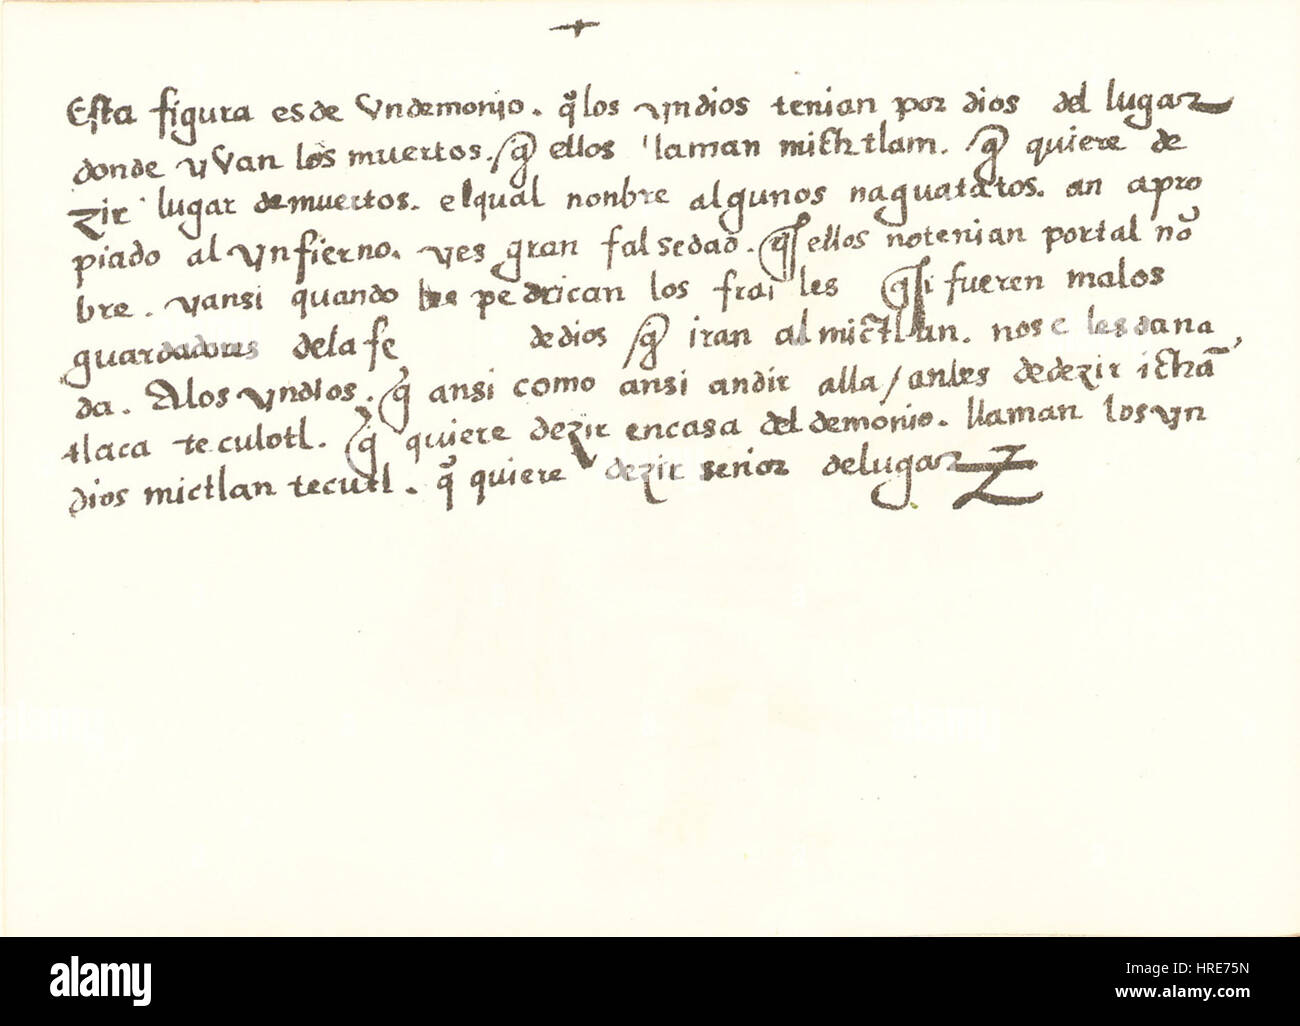 Esta figura es de Vn demonio. q̃ los yndios tenian por dios del lugar
donde y Van los muertos. q̃ ellos llaman michtlam. q̃ quiere de
zir lugar de muertos. el qual nonbre algunos naguatatos. an apro
piado al ynfierno. y es gran falsedad. q̃ ellos no tenian por tal nõ
bre. y ansi quando les pedrican los frailes q̃ si fueren malos
guardadores de la fe de dios q̃ iran al mictlan. no se les da na
da. A los yndios. q̃ ansi como ansi an dir alla / antes de dezir ichã
tlaca teculotl. q̃ quiere dezir en casa del demonio. llaman los yn
dios mictlan tecutl. q̃ quiere dezir senior del lugar
alamy
Image ID: HRE75N
www.alamy.com